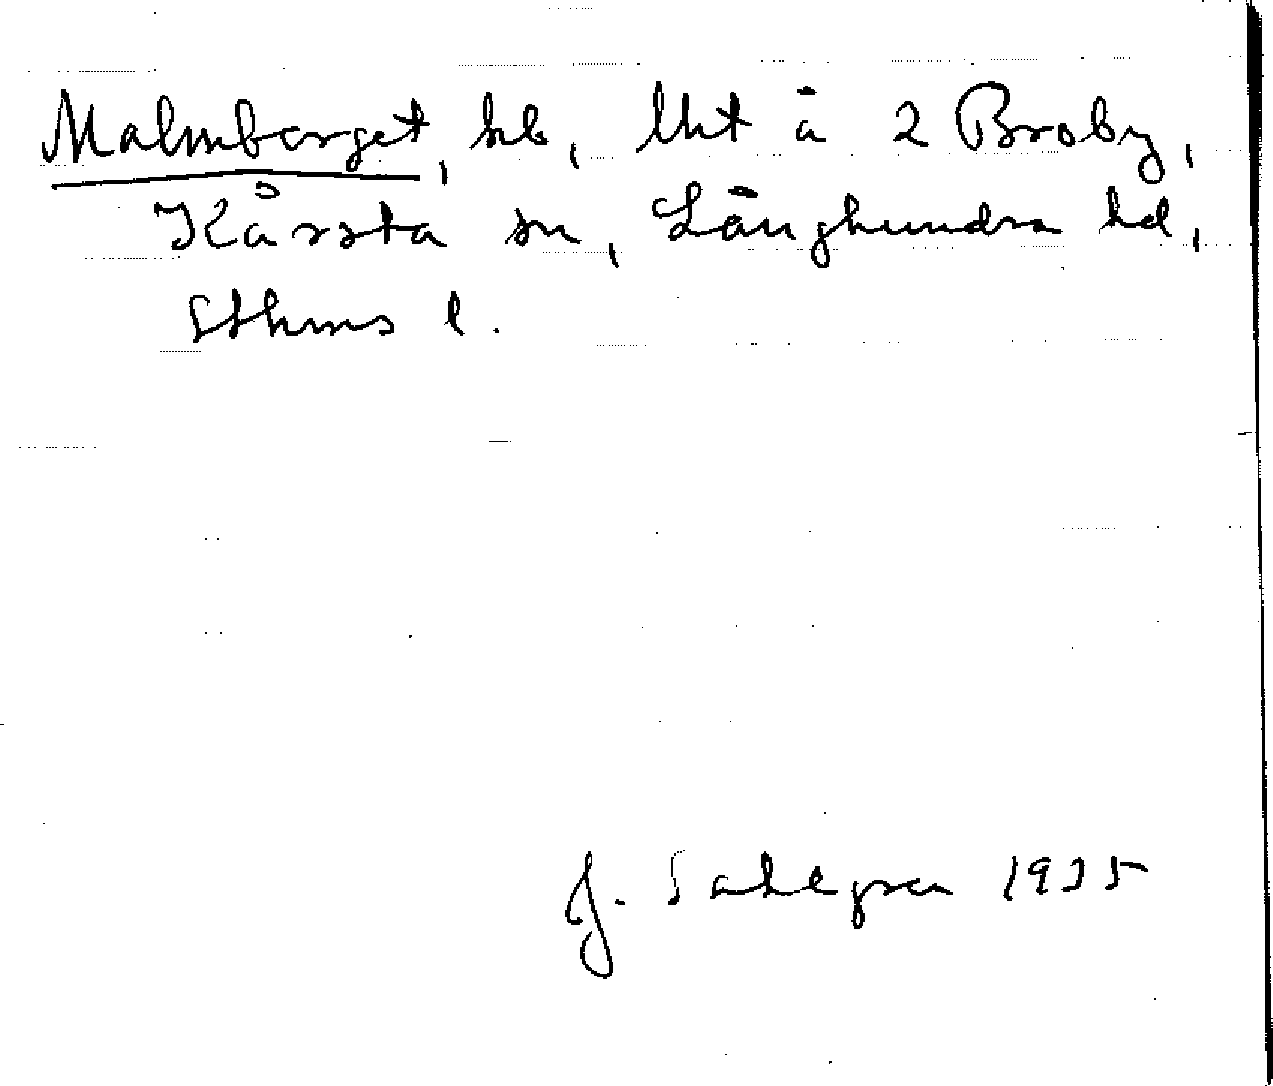 Malmberget, hb, Uht å 2 Broby,
Kårsta sn, Långhundra hd,
Sthms l.
J. Sahlgren 1935